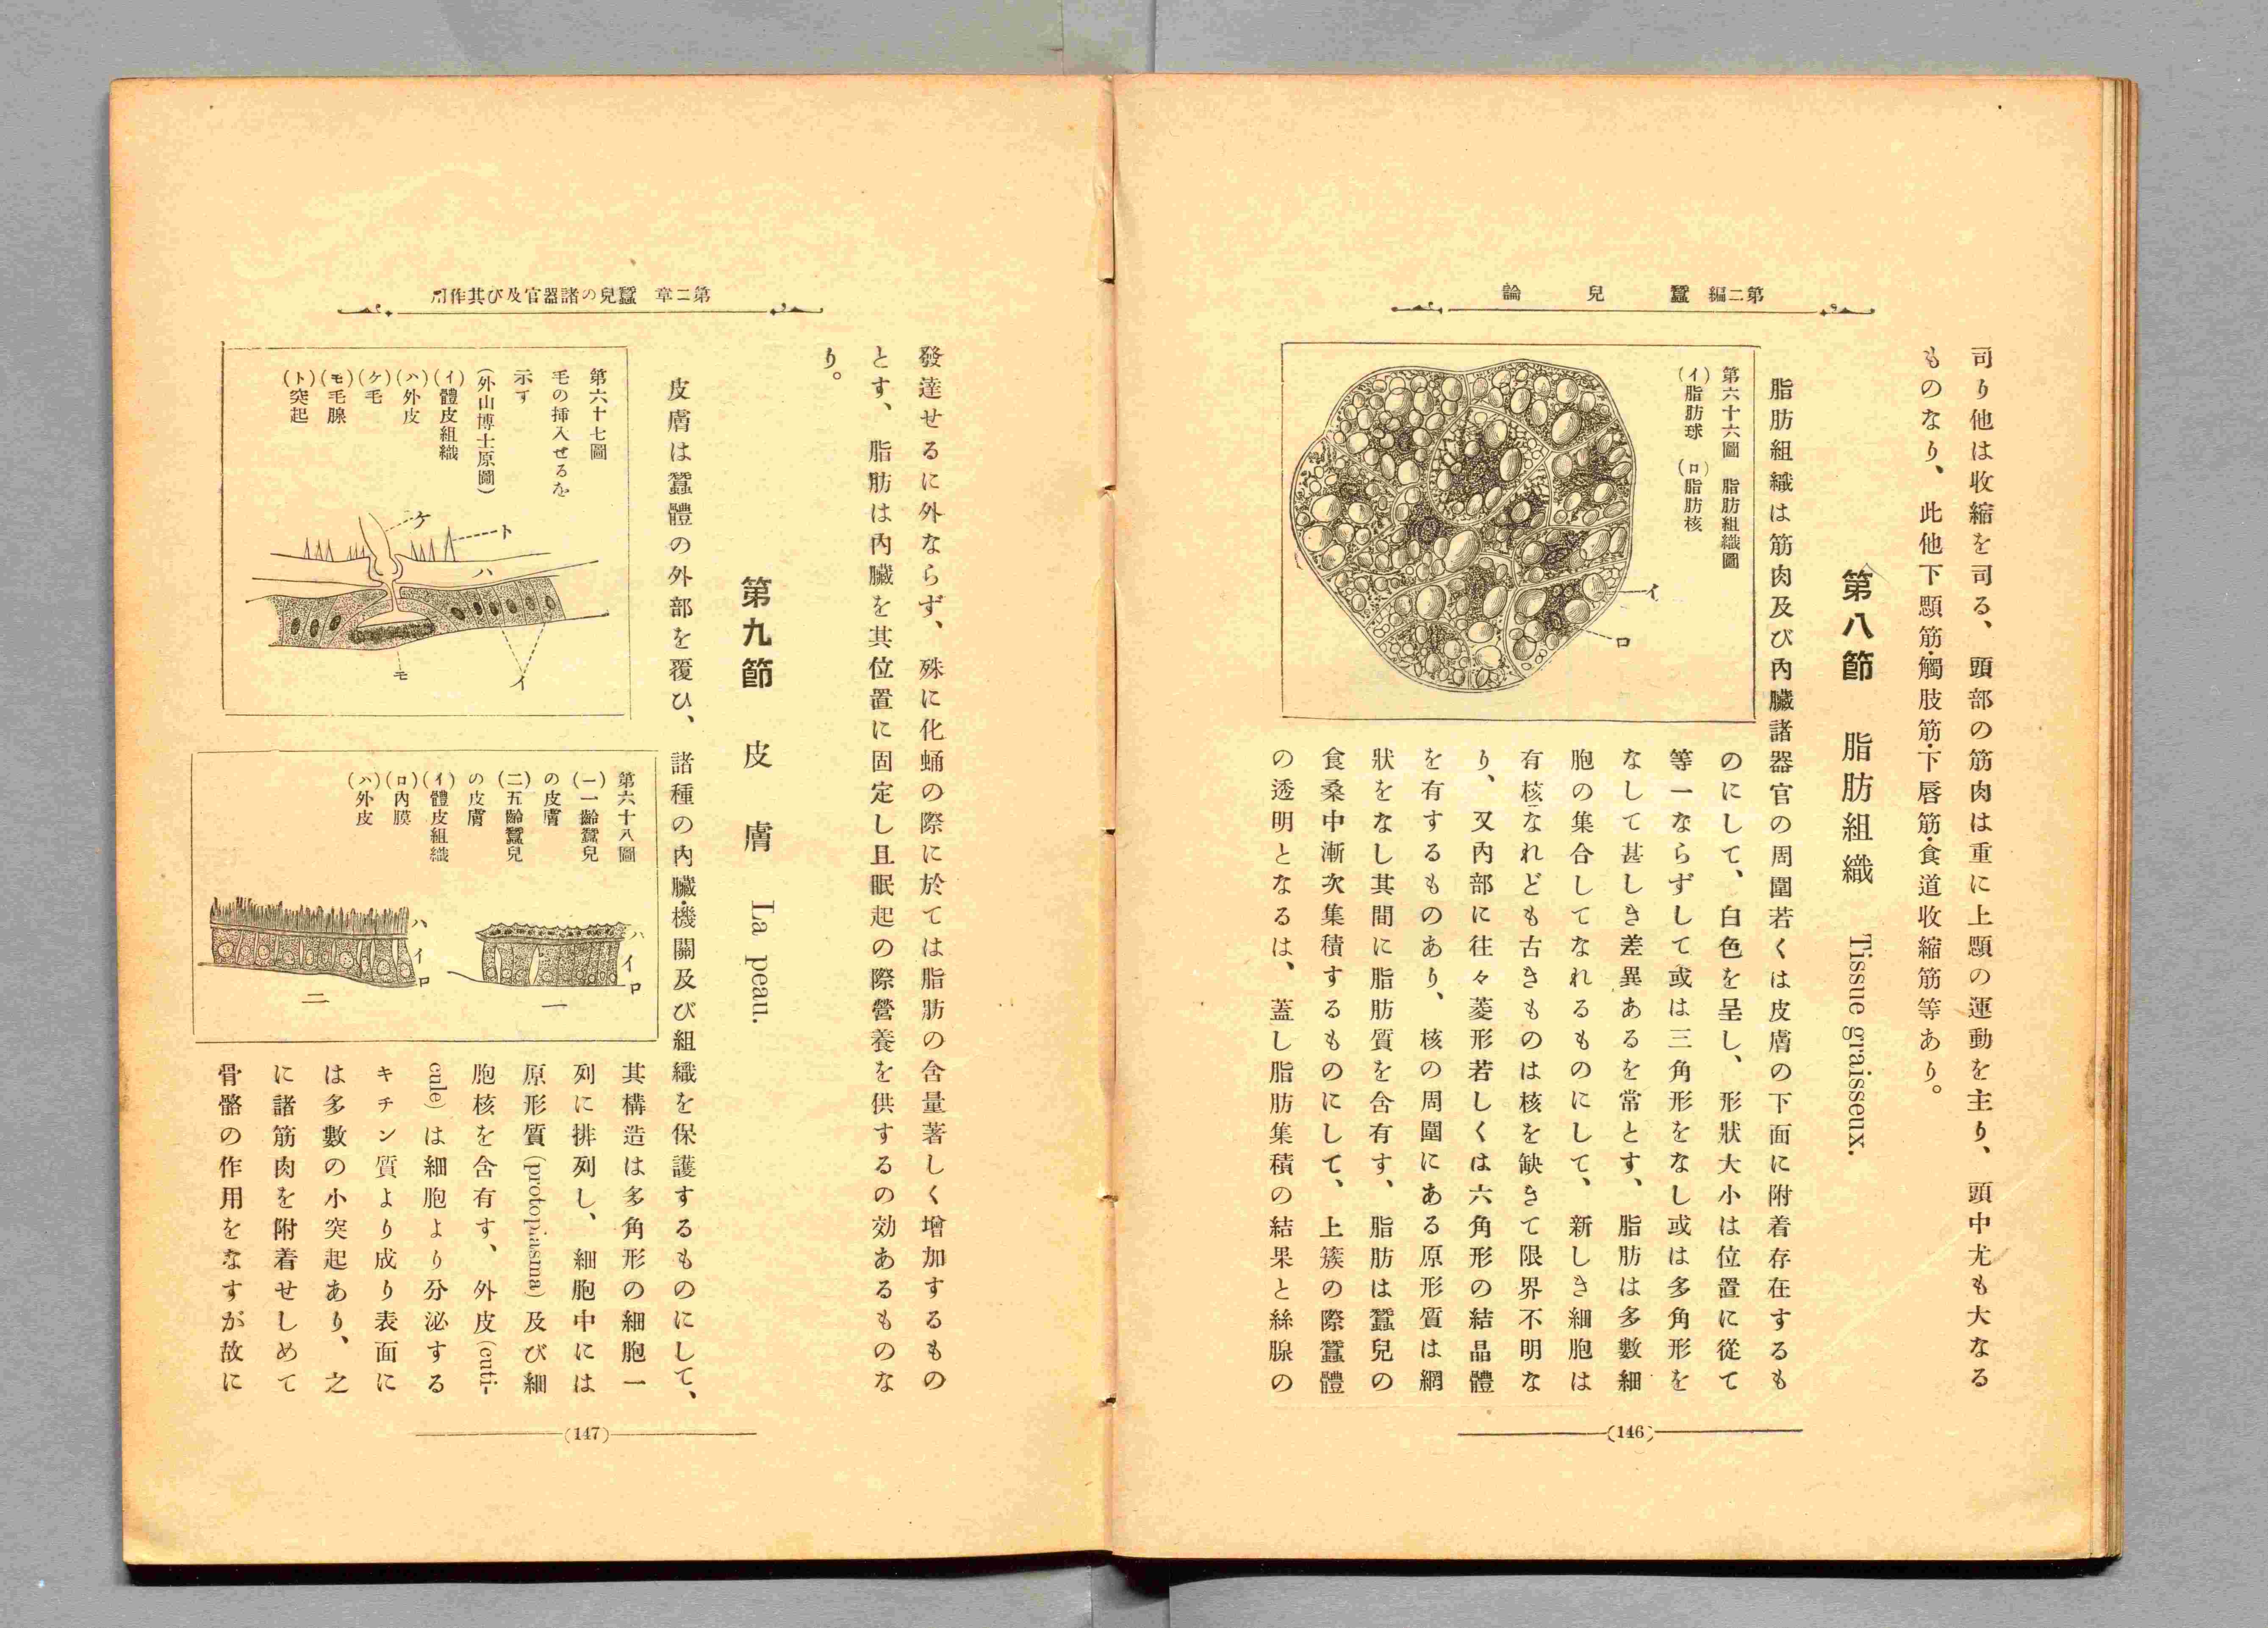 第二編　蠶兒論
司り他は收縮を司る、頭部の筋肉は重に上顋の運動を主り、頭中尤も大なる
ものなり、此他下顋筋・觸肢筋・下唇筋・食道收縮筋等あり。
第八節　脂肪組織　Tissue graisseux.
脂肪組織は筋肉及び內臟諸器官の周圍若くは皮膚の下面に附着存在するも
のにして、白色を呈し、形狀大小は位置に從て
等一ならずして或は三角形をなし或は多角形を
なして甚しき差異あるを常とす、脂肪は多數細
胞の集合してなれるものにして、新しき細胞は
有核なれども古きものは核を缺きて限界不明な
り、又內部に往々菱形若しくは六角形の結晶體
を有するものあり、核の周圍にある原形質は網
狀をなし其間に脂肪質を含有す、脂肪は蠶兒の
食桑中漸次集積するものにして、上簇の際蠶體
の透明となるは、蓋し脂肪集積の結果と絲腺の
第六十六圖　脂肪組織圖
(イ)脂肪球　(ロ)脂肪核
イ
ロ
(146)
第二章　蠶兒の諸器官及び其作用
發達せるに外ならず、殊に化蛹の際に於ては脂肪の含量著しく增加するもの
とす、脂肪は內臟を其位置に固定し且眠起の際營養を供するの効あるものな
り。
第九節　皮膚　La peau.
皮膚は蠶體の外部を覆ひ、諸種の內臟・機關及び組織を保護するものにして、
其構造は多角形の細胞一
列に排列し、細胞中には
原形質(protoplasma)及び細
胞核を含有す、外皮(cuti-
cule)は細胞より分泌する
キチン質より成り表面に
は多數の小突起あり、之
に諸筋肉を附着せしめて
骨骼の作用をなすが故に
第六十七圖
毛の揷入せるを
示す
(外山博士原圖)
(イ)體皮組織
(ハ)外皮
(ケ)毛
(モ)毛腺
(ト)突起
ケ
ト
ハ
モ
イ
第六十八圖
(一)一齡蠶兒
の皮膚
(二)五齡蠶兒
の皮膚
(イ)體皮組織
(ロ)內膜
(ハ)外皮
ハ
イ
ロ
一
ハ
イ
ロ
二
(147)